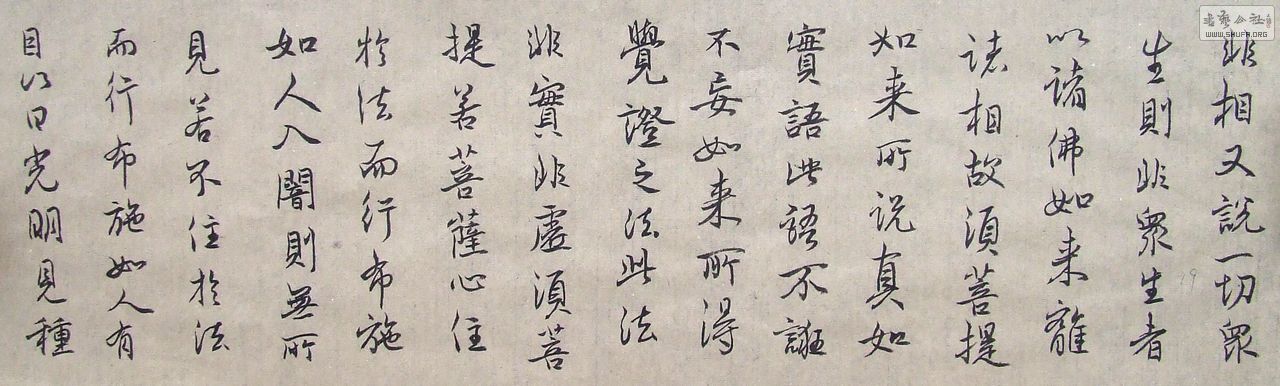 非相又説一切眾
生則非眾生者
以諸佛如来離
诸相故須菩提
如来所说真如
實語此語不誑
不妄如来所得
覺證之法此法
非實非虛須菩
提若菩薩心住
於法而行布施
如人入闇則無所
見若不住於法
而行布施如人有
目以日光明見種
書藝公社
WWW.SHUFA.ORG